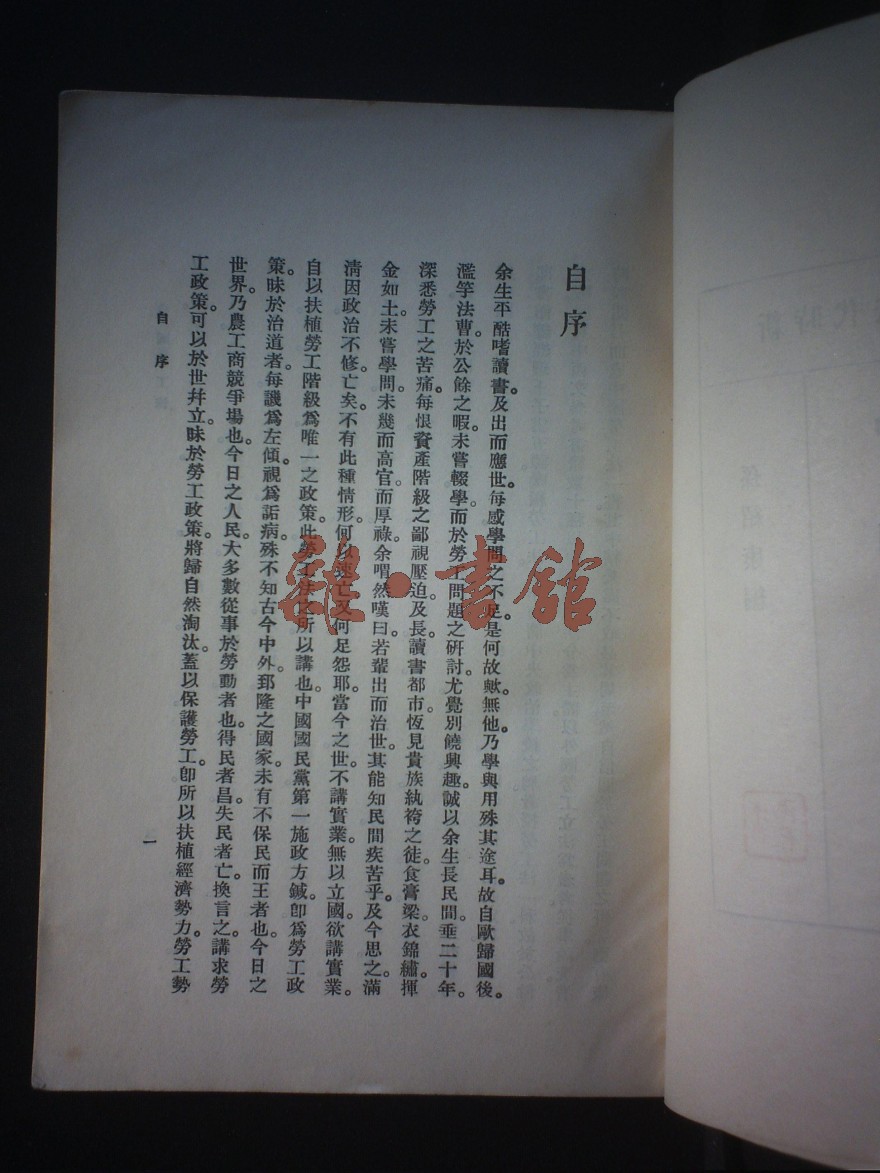 自序
余生平酷嗜讀書。及出而應世。每感學問之不足。是何故歟。無他。乃學與用殊其途耳。故自歐歸國後。
濫竽法曹。於公餘之暇。未嘗輟學。而於勞工問題之研討。尤覺別饒興趣。誠以余生長民間。垂二十年。
深悉勞工之苦痛。每恨資產階級之鄙視壓迫。及長讀書都市。恆見貴族紈袴之徒。食膏粱。衣錦繡。揮
金如土。未嘗學問。未幾而高官。而厚祿。余喟然嘆曰。若輩出而治世。其能知民間疾苦乎。及今思之。滿
清因政治不修。亡矣。不有此種情形。何以速亡。又何足怨耶。當今之世。不講實業。無以立國。欲講實業。
自以扶植勞工階級爲唯一之政策。此勞工法之所以講也。中國國民黨第一施政方鍼。卽爲勞工政
策。昧於治道者。每譏爲左傾。視爲詬病。殊不知古今中外。郅隆之國家。未有不保民而王者也。今日之
世界。乃農工商競爭場也。今日之人民。大多數從事於勞動者也。得民者昌。失民者亡。換言之。講求勞
工政策。可以於世幷立。昧於勞工政策。將歸自然淘汰。蓋以保護勞工。卽所以扶植經濟勢力。勞工勢
自序
一
雜·書館